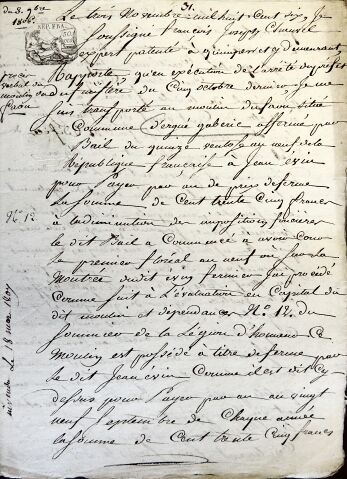 du 3. 9bre
1806
REP. FRA.
31.
Le trois Novembre mil huit Cent six, Je
Soussigné François Joseph
expert patenté à quimper et y demeurant,
Rapporte qu'en exécution de L'arrêté du préfet
du finistère du Cinq octobre dernier, je me
suis transporté au moulin du faou situé
Commune d'ergué gaberic affermé par
Bail du quinze ventose an neuf de la
République française à Jean evin
pour Payer par an de prix de ferme
La somme de Cent trente Cinq francs
à la diminution des impositions foncières
le dit Bail a Commencé à avoir Cour
le premier floréal an neuf ou sur la
Montrée dudit evin fermier j'ai procédé
Comme suit à L'évaluation en Capital du
dit moulin et dépendances N.° 12. du
Sommier de la Légion d'honneur Ce
Moulin est possédé à titre de ferme par
le dit Jean evin Comme il est dit Cy
dessus pour Payer par an au vingt
neuf Septembre de Chaque année
La somme de Cent trente Cinq francs
procès
verbal du
moulin du
faou
N.° 12.
Le 18 mai 1807